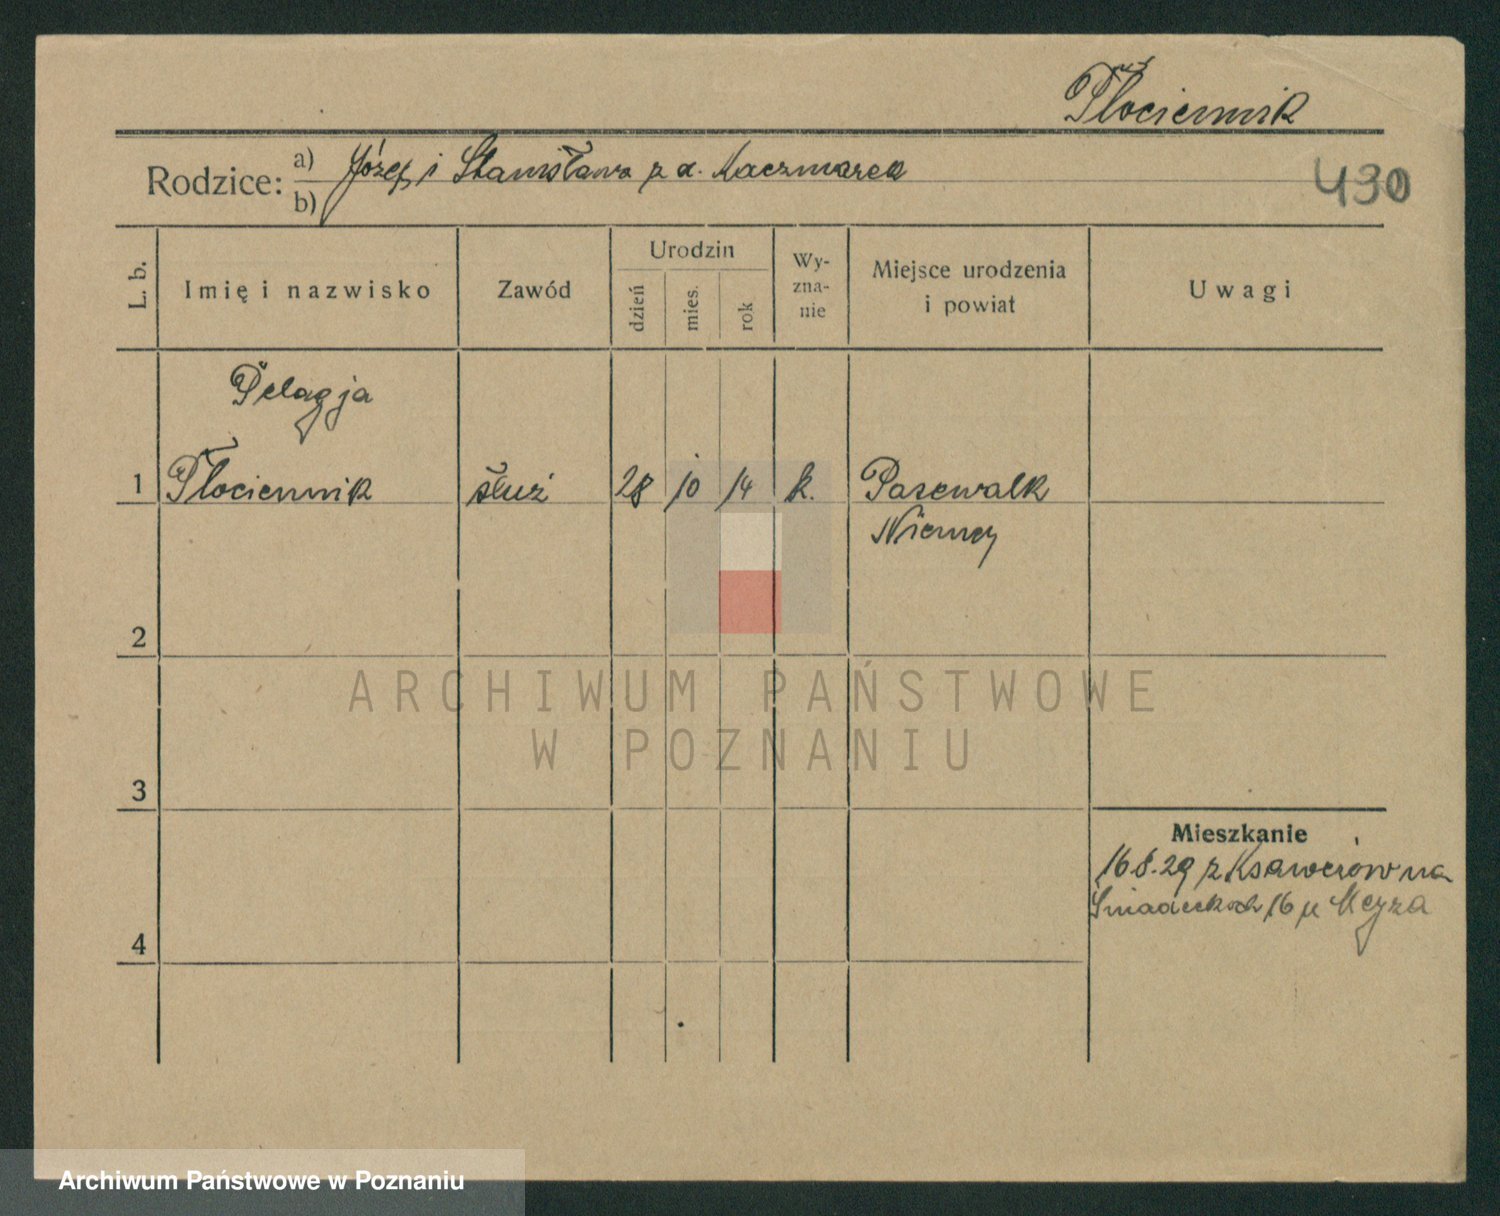 Płociennik
Rodzice: a) Józef i Stanisława z d. Kaczmarek
b)
430
L. b.
Imię i nazwisko
Zawód
Urodzin
dzień
mies.
rok
Wy-
zna-
nie
Miejsce urodzenia
i powiat
Uwagi
Pelagja
1 Płociennik służ 28 10 14 k. Pasewalk
Niemcy
2
ARCHIWUM PAŃSTWOWE
W POZNANIU
3
Mieszkanie
16.8.29 z Ksawerów na
Śniadeckich 16 u Meyza
4
Archiwum Państwowe w Poznaniu